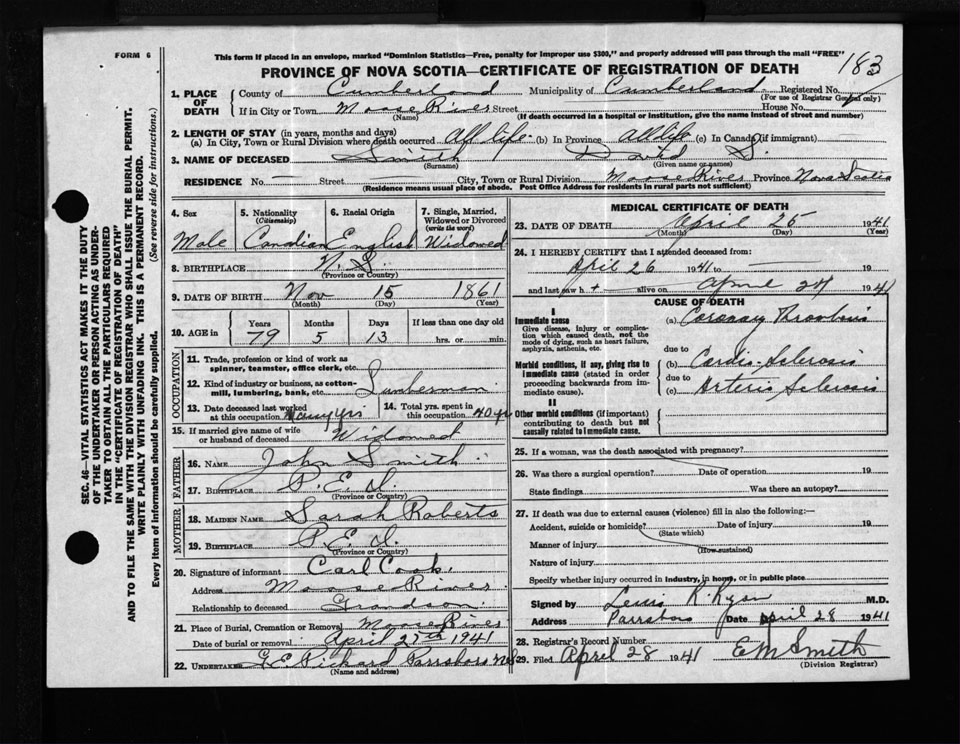 FORM 6
This form if placed in an envelope, marked "Dominion Statistics—Free, penalty for improper use $300," and properly addressed will pass through the mail "FREE"
183
PROVINCE OF NOVA SCOTIA—CERTIFICATE OF REGISTRATION OF DEATH
1. PLACE OF DEATH
County of Cumberland Municipality of Cumberland Registered No.
(For use of Registrar General only)
If in City or Town Moose River Street House No.
(Name) (If death occurred in a hospital or institution, give the name instead of street and number)
2. LENGTH OF STAY (in years, months and days)
(a) In City, Town or Rural Division where death occurred All life (b) In Province All life (c) In Canada (if immigrant)
3. NAME OF DECEASED Smith David S.
(Surname) (Given name or names)
RESIDENCE No. — Street City, Town or Rural Division Moose River Province Nova Scotia
(Residence means usual place of abode. Post Office Address for residents in rural parts not sufficient)
4. Sex
Male
5. Nationality
(Citizenship)
Candian
6. Racial Origin
English
7. Single, Married, Widowed or Divorced
(write the word)
Widowed
8. BIRTHPLACE N.S.
(Province or Country)
9. DATE OF BIRTH Nov 15 1861
(Month) (Day) (Year)
10. AGE in
Years Months Days If less than one day old
79 5 13 hrs. or min.
OCCUPATION
11. Trade, profession or kind of work as spinner, teamster, office clerk, etc.
12. Kind of industry or business, as cotton-mill, lumbering, bank, etc. Lumberman
13. Date deceased last worked at this occupation Many yrs
14. Total yrs. spent in this occupation 40 yrs
15. If married give name of wife or husband of deceased Widowed
FATHER
16. NAME John Smith
17. BIRTHPLACE P.E.I.
(Province or Country)
MOTHER
18. MAIDEN NAME Sarah Roberts
19. BIRTHPLACE P.E.I.
(Province or Country)
20. Signature of informant Carl Cook
Address Moose River
Relationship to deceased Grandson
21. Place of Burial, Cremation or Removal Moose River
Date of burial or removal April 27th 1941
22. UNDERTAKER G E Rickard Parrsboro N.S.
(Name and address)
MEDICAL CERTIFICATE OF DEATH
23. DATE OF DEATH April 25 1941
(Month) (Day) (Year)
24. I HEREBY CERTIFY that I attended deceased from:
April 26 1941 to — 19
and last saw h alive on April 1941
CAUSE OF DEATH
I
Immediate cause
Give disease, injury or complication which caused death, not the mode of dying, such as heart failure, asphyxia, asthenia, etc.
(a) Coronary Thrombosis
due to
Morbid conditions, if any, giving rise to immediate cause (stated in order proceeding backwards from immediate cause).
(b) Cardio-Sclerosis
due to
(c) Arterio Sclerosis
II
Other morbid conditions (if important) contributing to death but not causally related to immediate cause.
25. If a woman, was the death associated with pregnancy?
26. Was there a surgical operation? Date of operation 19
State findings Was there an autopsy?
27. If death was due to external causes (violence) fill in also the following:—
Accident, suicide or homicide? Date of injury 19
(State which)
Manner of injury
(How sustained)
Nature of injury
Specify whether injury occurred in industry, in home, or in public place
Signed by Lewis R. Ryan M.D.
Address Parrsboro Date April 28 1941
28. Registrar's Record Number
29. Filed April 28 1941 E M Smith
(Division Registrar)
SEC. 46—VITAL STATISTICS ACT MAKES IT THE DUTY
OF THE UNDERTAKER OR PERSON ACTING AS UNDER-
TAKER TO OBTAIN ALL THE PARTICULARS REQUIRED
IN THE "CERTIFICATE OF REGISTRATION OF DEATH"
AND TO FILE THE SAME WITH THE DIVISION REGISTRAR WHO SHALL ISSUE THE BURIAL PERMIT.
WRITE PLAINLY WITH UNFADING INK. THIS IS A PERMANENT RECORD.
Every item of information should be carefully supplied. (See reverse side for instructions.)